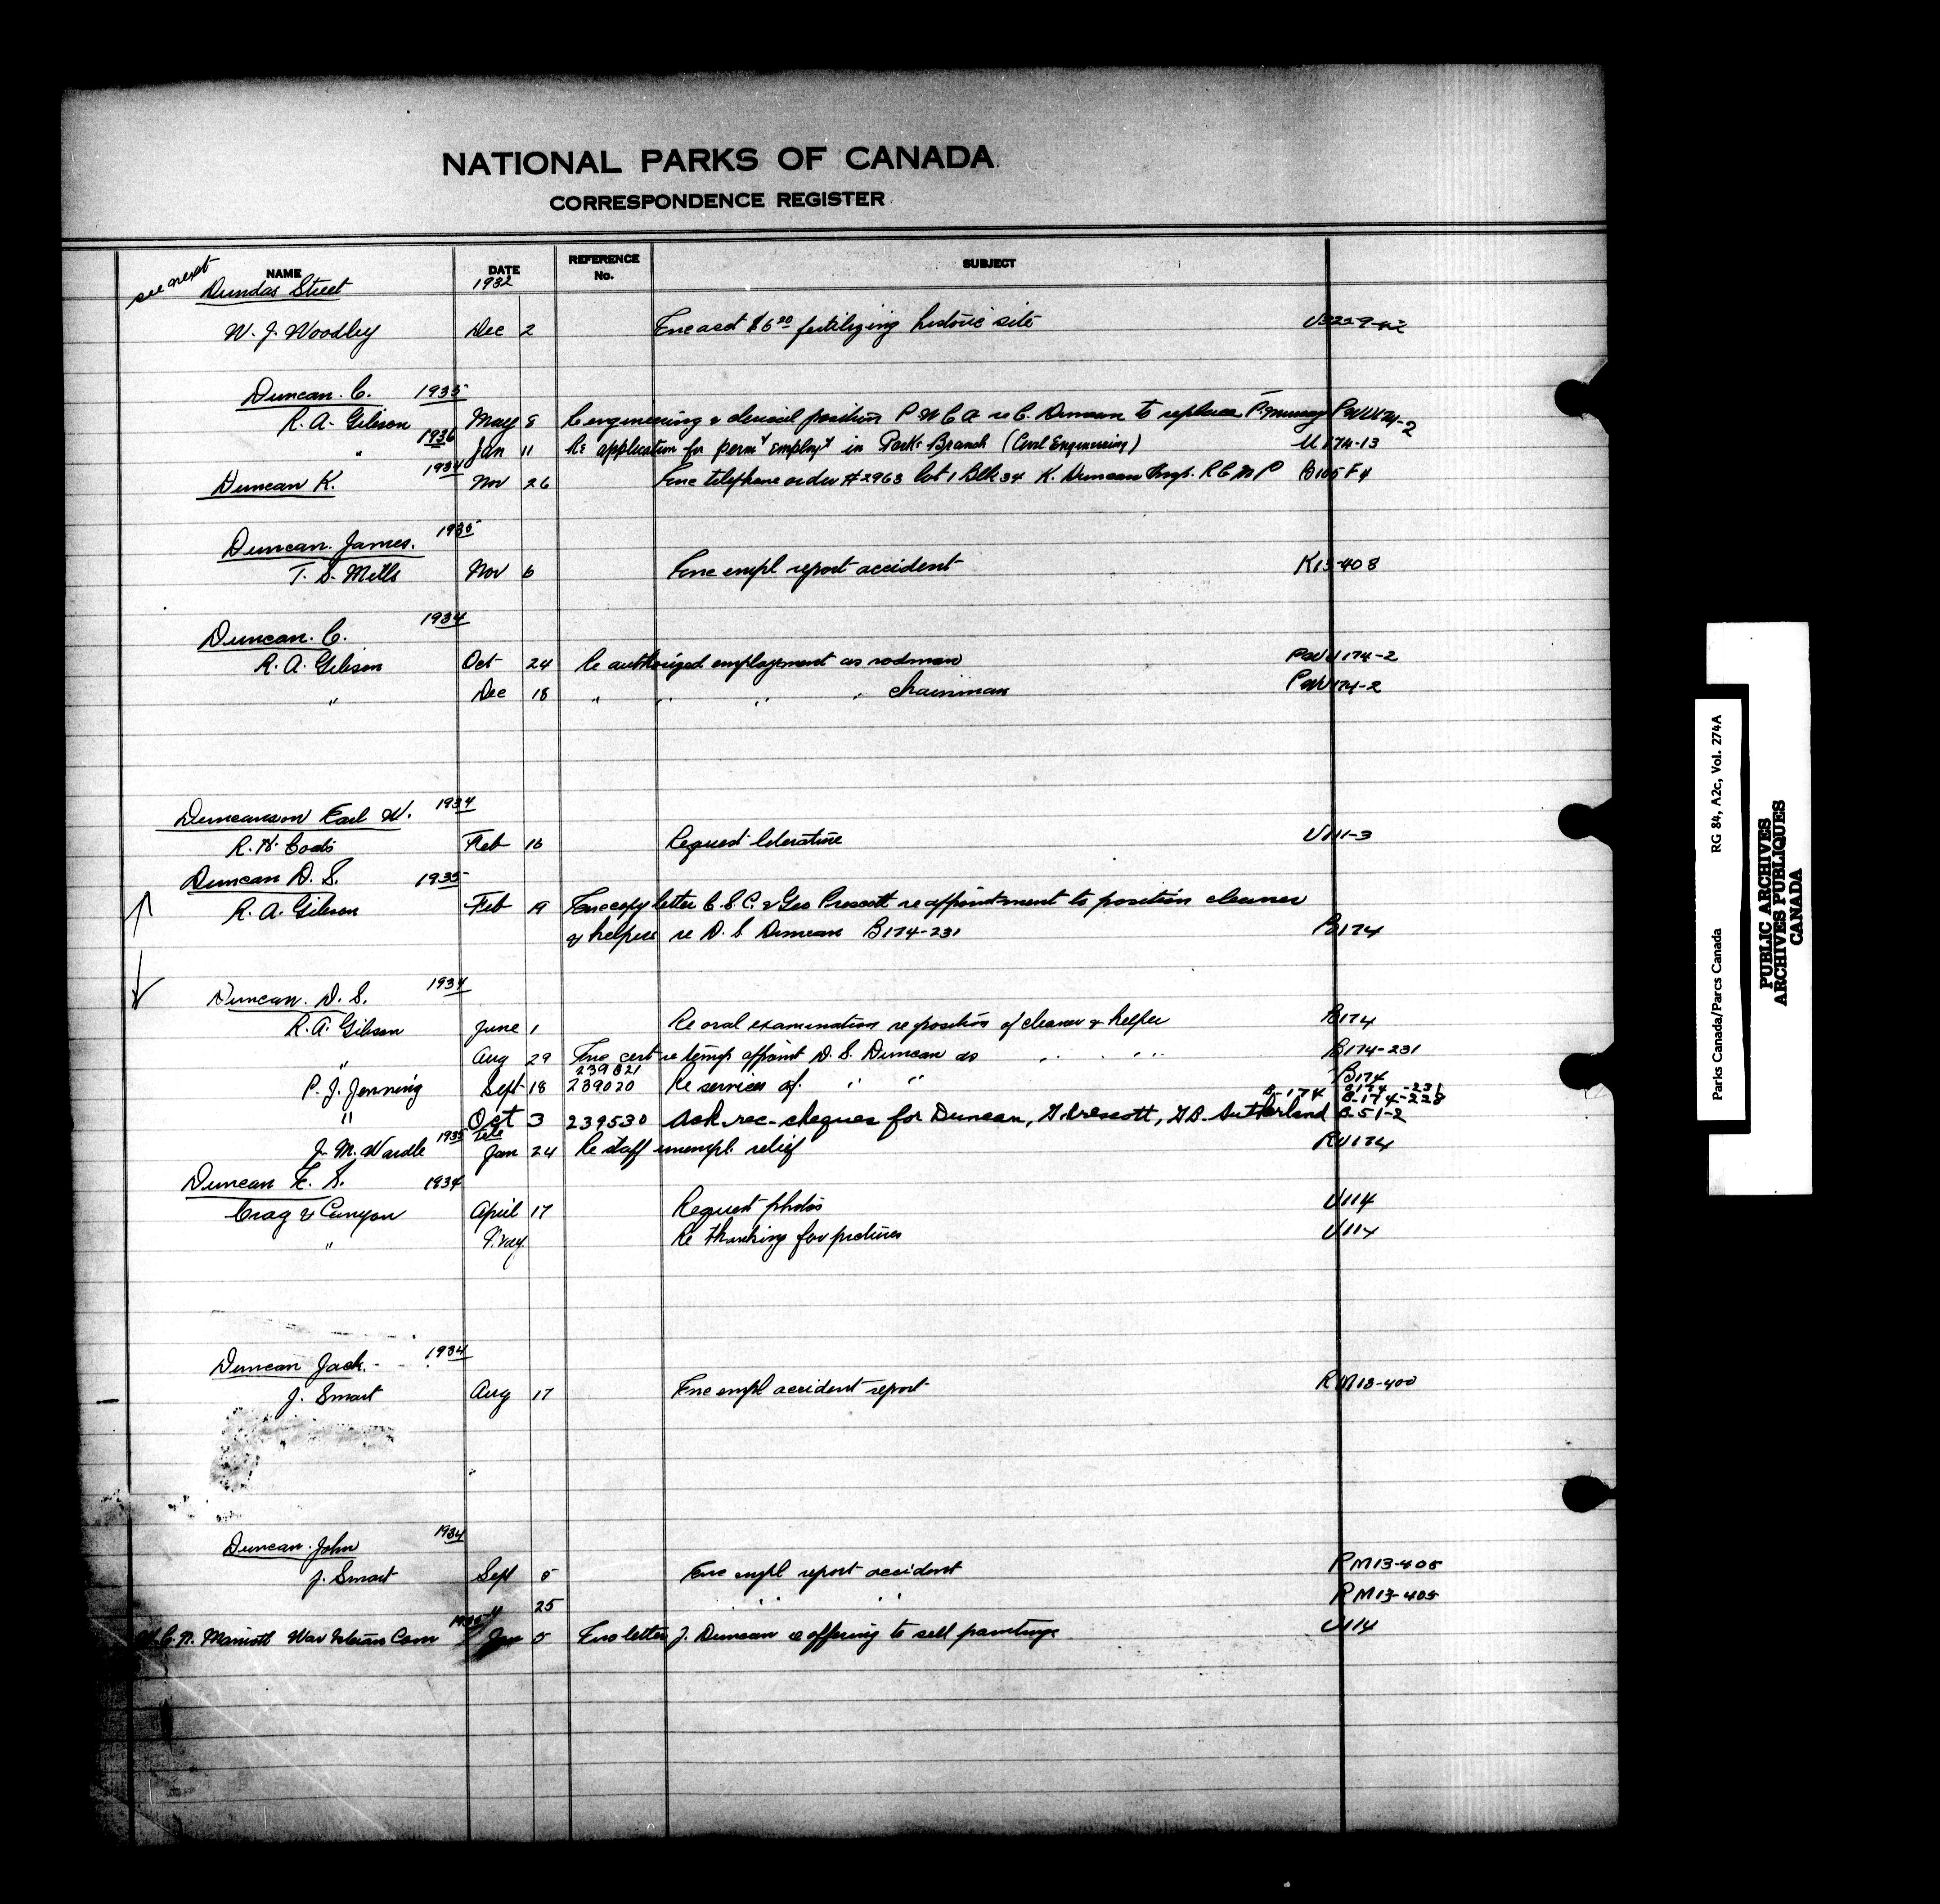 NATIONAL PARKS OF CANADA
CORRESPONDENCE REGISTER
NAME DATE REFERENCE No. SUBJECT
see next
Dundas Street 1932
W. J. Woodley Dec 2 Enc acct $6 20 fertilizing historic site
Duncan. C. 1935
R. A. Gibson May 8 Re engineering & clerical position P W C A re C. Duncan to replace P. Murray PWU174-2
1936
" Jan 11 Re application for perm't employ't in Parks Branch (Civil Engineering) U174-13
Duncan K. 1934 Nov 26 Enc telephone order #2963 lot 1 Blk 34 K. Duncan Insp. R C M P B105 F4
Duncan. James. 1935
T. S. Mills Nov 6 Enc empl report accident K13-408
Duncan. C. 1934
R. A. Gibson Oct 24 Re authorized employment as rodman PWU174-2
" Dec 18 " " " " chainman PWU174-2
Duncanson Earl W. 1934
R. H. Coats Feb 16 Request literature U111-3
Duncan D. S. 1935
R. A. Gibson Feb 19 Enc copy letter C. S. C. & Geo Prescott re appointment to position cleaner
& helper re D. S. Duncan B174-231 B174
Duncan. D. S. 1934
R. A. Gibson June 1 Re oral examination re position of cleaner & helper B174
" Aug 29 Enc cert re temp appoint D. S. Duncan as " " " " B174-231
239021
P. J. Jenning Sept 18 239020 Re services of " " B174
B-174 B174-231
B-174-228
" Oct 3 239530 Ack. rec. cheques for Duncan, G. Prescott, G. B. Sutherland B-51-2
J. M. Wardle 1935 tele Jan 24 Re staff unempl. relief RU174
Duncan K. S. 1934
Crag & Canyon April 17 Request photos U114
" May Re thanking for pictures U114
Duncan Jack. 1934
J. Smart Aug 17 Enc empl accident report RM13-400
Duncan. John 1934
J. Smart Sept 5 Enc empl report accident RM13-405
" 25 " " " RM13-405
Marriott War Veterans Com 5 Enc letter J. Duncan re offering to sell paintings U114
Parks Canada/Parcs Canada RG 84, A2c, Vol. 274A
PUBLIC ARCHIVES
ARCHIVES PUBLIQUES
CANADA